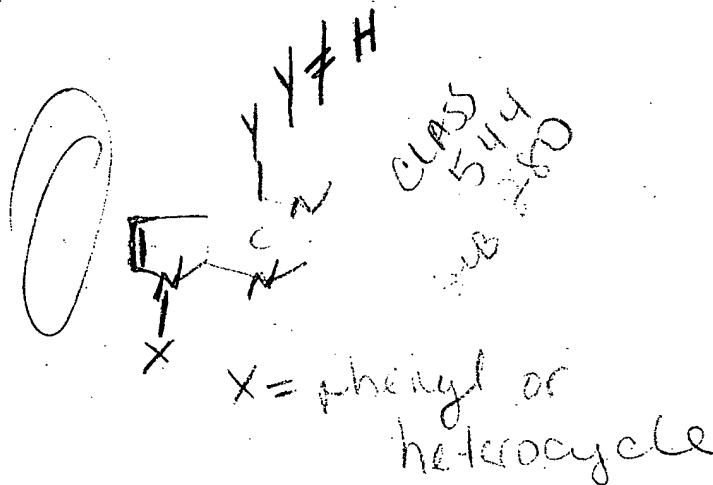 Y ≠ H
Y
N
C
N
N
X
CLASS
544
280
X = phenyl or
heterocycle